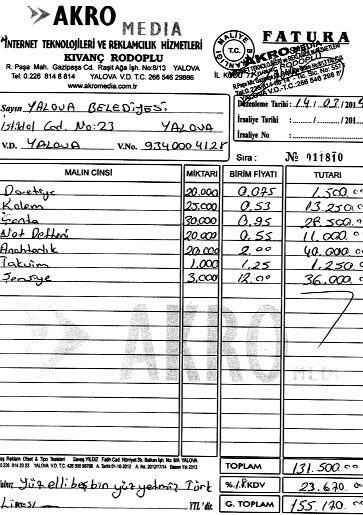 AKRO
MEDIA
İNTERNET TEKNOLOJİLERİ VE REKLAMCILIK HİZMETLERİ
KIVANÇ RODOPLU
R. Paşa Mah. Gazipaşa Cd. Raşit Ağa İşh. No:8/13 YALOVA
Tel: 0.226 814 8 814 YALOVA V.D. T.C. 266 545 29886
www.akromedia.com.tr
FATURA
MALİYE
T.C.
AKRO
RODOPLU
Sayın YALOVA BELEDİYESİ
İstiklal Cad. No: 23 YALOVA
V.D. YALOVA V.No. 934 000 4128
Düzenleme Tarihi : 14.03/201
İrsaliye Tarihi : ....../....../201
İrsaliye No :
Sıra : № 011810
MALIN CİNSİ MİKTARI BİRİM FİYATI TUTARI
20.000 0.075 1.500.00
Kalem 25.000 0.53 13.250.00
Çanta 30.000 0.95 28.500.00
Not Defteri 20.000 0.55 11.000.00
Anahtarlık 20.000 2.00 40.000.00
Takvim 1.000 1,25 1.250.00
Şemsiye 3.000 12.00 36.000.00
AKRO
MEDIA
TOPLAM 131.500.00
%18 KDV 23.670.00
G. TOPLAM 155.170.00
Yalnız Yüzellibeşbin yüzyetmiş Türk
Lirası YTL'dir.